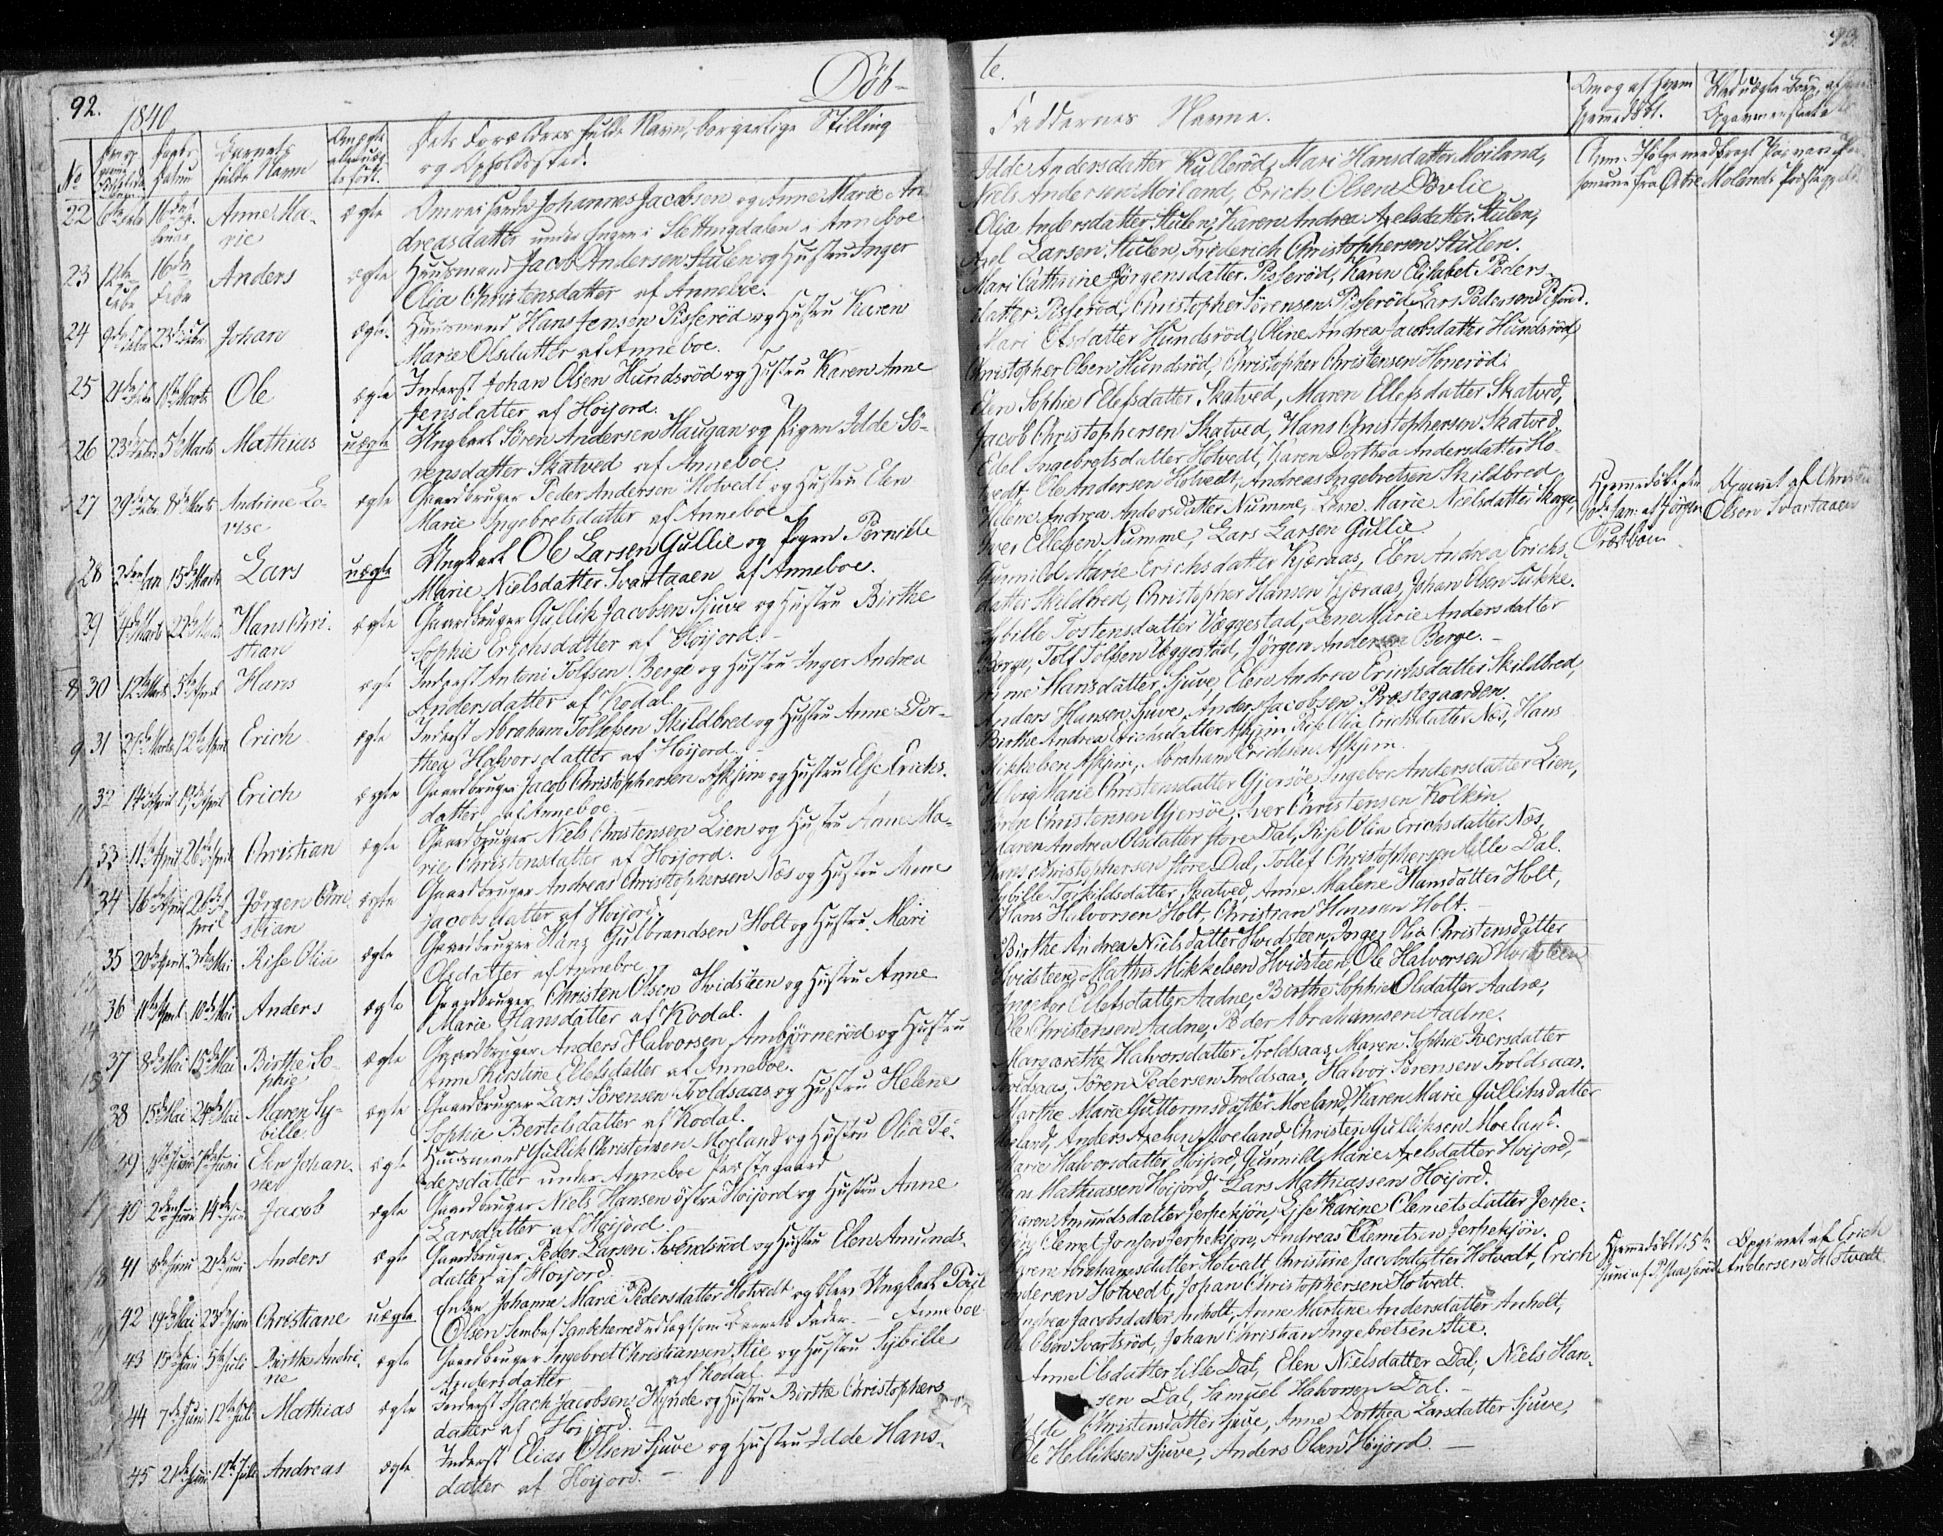 92.
1840
Döb-
No
Barnets fulde Navn
Dets Forældres fulde Navn, borgerlige Stilling
og Opholdsted.
22 16de Anne Ma- ægte Omreisende Johannes Jacobsen og Anne Marie An-
rie dreasdatter under i Anneboe
23 12te Febr 16de Febr Anders ægte Huusmand Jacob Andersen Stulen og Hustru Inger
Olia Christensdatter af Anneboe.
24 9de Febr 23de Febr Johan ægte Huusmand Hans Jensen Pisserød og Hustru Karen
Marie Olsdatter af Anneboe.
25 21de Febr 1ste Marts Ole ægte Inderst Johan Olsen Hundsrød og Hustru Karen Anne
Jensdatter af Höijord.
26 23de Febr 5te Marts Mathias uægte Ungkarl Sören Andersen Haugan og Pigen Idde Sö-
rensdatter Skatved af Anneboe.
27 29de Febr 8de Marts Andrine Lo- ægte Gaardbruger Peder Andersen Hotvedt og Hustru Elen
vise Marie Ingebretsdatter af Anneboe
28 2den Jan 15de Marts Lars uægte Ungkarl Ole Larsen Gullie og Pigen Pernille
Marie Nielsdatter Svartaaen af Anneboe.
39 4de Marts 22de Marts Hans Chri- ægte Gaardbruger Gullik Jacobsen Sjuve og Hustru Birthe
stian Sophie Erichsdatter af Höijord.
30 12te Marts 5te April Hans ægte Inderst Antoni Tolfsen Berge og Hustru Inger Andrea
Andersdatter af Kodal.
31 21de Marts 12te April Erich ægte Inderst Abraham Tollefsen Skildbred og Hustru Anne Dor-
thea Halvorsdatter af Höijord.
32 April Erich ægte Gaardbruger Jacob Christophersen Askjim og Hustru Else Erichs-
datter af Anneboe.
33 11te April 26de April Christian ægte Gaardbruger Niels Christensen Lien og Hustru Anne Ma-
rie Christensdatter af Höijord.
34 16de April 26de April Jörgen Chri- ægte Gaardbruger Andreas Christophersen Næs og Hustru Anne
stian Jacobsdatter af Höijord.
35 20de April 3die Mai Risse Olia ægte Gaardbruger Hans Gulbrandsen Holt og Hustru Mari
Olsdatter af Anneboe
36 11te April 10de Mai Anders ægte Gaardbruger Christen Olsen Hvidsteen og Hustru Anne
Marie Hansdatter af Kodal.
37 8de Mai 15de Mai Birthe So- ægte Gaardbruger Anders Halvorsen Ambjörnerød og Hustru
phie Anne Kirstine Ellefsdatter af Anneboe.
38 15de Mai 24de Mai Maren Sy- ægte Gaardbruger Lars Sörensen Troldsaas og Hustru Helene
bille Sophie Bertelsdatter af Kodal.
39 Juni Elen Johan- ægte Huusmand Gullik Christensen Moeland og Hustru Olia Pe-
ne dersdatter under Anneboe Præstegaard
40 2den Juni 14de Juni Jacob ægte Gaardbruger Niels Hansen östre Höijord og Hustru Anne
Larsdatter af Höijord.
41 Juni 21de Juni Anders ægte Gaardbruger Peder Larsen Svendsrød og Hustru Elen Amunds-
datter af Höijord.
42 19de Mai 23de Juni Christiane uægte Enken Johanne Marie Pedersdatter Hotvedt og blev Ungkarl Poul
Olsen Sembs Sandeherred udlagt som Barnets Fader. — Anneboe
43 15de Juni 5te Juli Birthe Andri- ægte Gaardbruger Ingebret Christiansen Stie og Hustru Sybille
ne Andersdatter af Kodal
44 7de Juni 12te Juli Mathias ægte Inderst Isach Jacobsen Hynde og Hustru Birthe Christophers-
datter af Höijord.
45 21de Juni 12te Juli Andreas ægte Inderst Elias Olsen Sjuve og Hustru Idde Hans-
datter af Höijord. —
te.
93
Faddernes Navne.
Om og af hvem
hjemmedöbt.
Idde Andersdatter Kullerød, Mari Hansdatter Moiland,
Niels Andersen Moiland, Erich Olsen Dövlie
Olia Andersdatter Stulen, Karen Andrea Axelsdatter Stulen,
Axel Larsen Stulen, Friderich Christophersen Stulen.
Mari Cathrine Jörgensdatter Pisserød, Karen Elisabet Peders-
datter Pisserød, Christopher Sörensen Pisserød, Lars Pedersen Pisserød.
Mari Olsdatter Hundsrød, Oline Andrea Jacobsdatter Hundsrød,
Christopher Olsen Hundsrød, Christopher Christensen Honerød.
Elen Sophie Ellefsdatter Skatved, Maren Ellefsdatter Skatved,
Jacob Christophersen Skatved, Hans Christophersen Skatved.
Edel Ingebretsdatter Hotvedt, Karen Dorthea Andersdatter Ho-
tvedt, Ole Andersen Hotvedt, Andreas Ingebretsen Skildbred
Helene Andrea Andersdatter Numme, Lene Marie Nielsdatter Skorge,
Iver Ellefsen Numme, Lars Larsen Gullie.
Hjemmedöbt den
Opgivet af Christen
Olsen Svartaaen
Gunnild Marie Erichsdatter Kjæraas, Elen Andrea Erichs-
datter Skildbred, Christopher Hansen Kjæraas, Johan Olsen
Sybille Tostensdatter Væggestad, Lene Marie Andersdatter
Berge, Tolf Tolfsen Væggestad, Jörgen Andersen Berge. —
Hansdatter Sjuve, Elen Andrea Erichsdatter Skildbred,
Anders Hansen Sjuve, Anders Jacobsen Præstegaarden.
Birthe Andrea Erichsdatter Askjim, Risse Olia Erichsdatter Næs, Hans
Mikkelsen Askjim, Abraham Erichsen Askjim.
Marie Christensdatter Gjersöe, Ingebor Andersdatter Lien,
Sören Christensen Gjersöe, Iver Christensen Kolkin.
Maren Andrea Olsdatter store Dal, Risse Olia Erichsdatter Næs,
Hans Christophersen store Dal, Tollef Christophersen lille Dal.
Sybille Torkildsdatter Skatved, Anne Malene Hansdatter Holt,
Hans Halvorsen Holt, Christian Hansen Holt. —
Birthe Andrea Nielsdatter Hvidsteen, Inger Olia Christensdatter
Hvidsteen, Mathis Mikkelsen Hvidsteen, Ole Halvorsen Hvidsteen
Ingebor Ellefsdatter Aadne, Birthe Sophie Olsdatter Aadne,
Ole Christensen Aadne, Peder Abrahamsen Aadne.
Margarethe Halvorsdatter Troldsaas, Maren Sophie Iversdatter
Troldsaas, Sören Pedersen Troldsaas, Halvor Sörensen Troldsaas.
Marthe Marie Guttormsdatter Moeland, Karen Marie Gulliksdatter
Moeland, Anders Axelsen Moeland, Christen Gulliksen Moeland.
Marie Halvorsdatter Höijord, Gunnild Marie Axelsdatter Höijord, —
Hans Mathiassen Höijord, Lars Mathiassen Höijord.
Karen Amundsdatter Jerpekjön, Lise Karine Clemetsdatter Jerpe-
kjön, Clemet Jonsen Jerpekjön, Andreas Clemetsen Jerpekjön.
Abrahamsdatter Hotvedt, Christine Jacobsdatter Hotvedt, Erich
Andersen Hotvedt, Johan Christophersen Hotvedt.
Hjemmedöbt 15de
Juni af
Opgivet af Erich
Andersen Hotvedt
Andrea Jacobsdatter Anholt, Anne Martine Andersdatter Anholt,
Ole Olsen Svartsrød, Johan Christian Ingebretsen Stie.
Anne Olsdatter lille Dal, Elen Nielsdatter Dal, Niels Han-
sen Dal, Samuel Halvorsen Dal. —
Idde Christensdatter Sjuve, Anne Dorthea Larsdatter Sjuve,
Ole Helliksen Sjuve, Anders Olsen Höijord. —